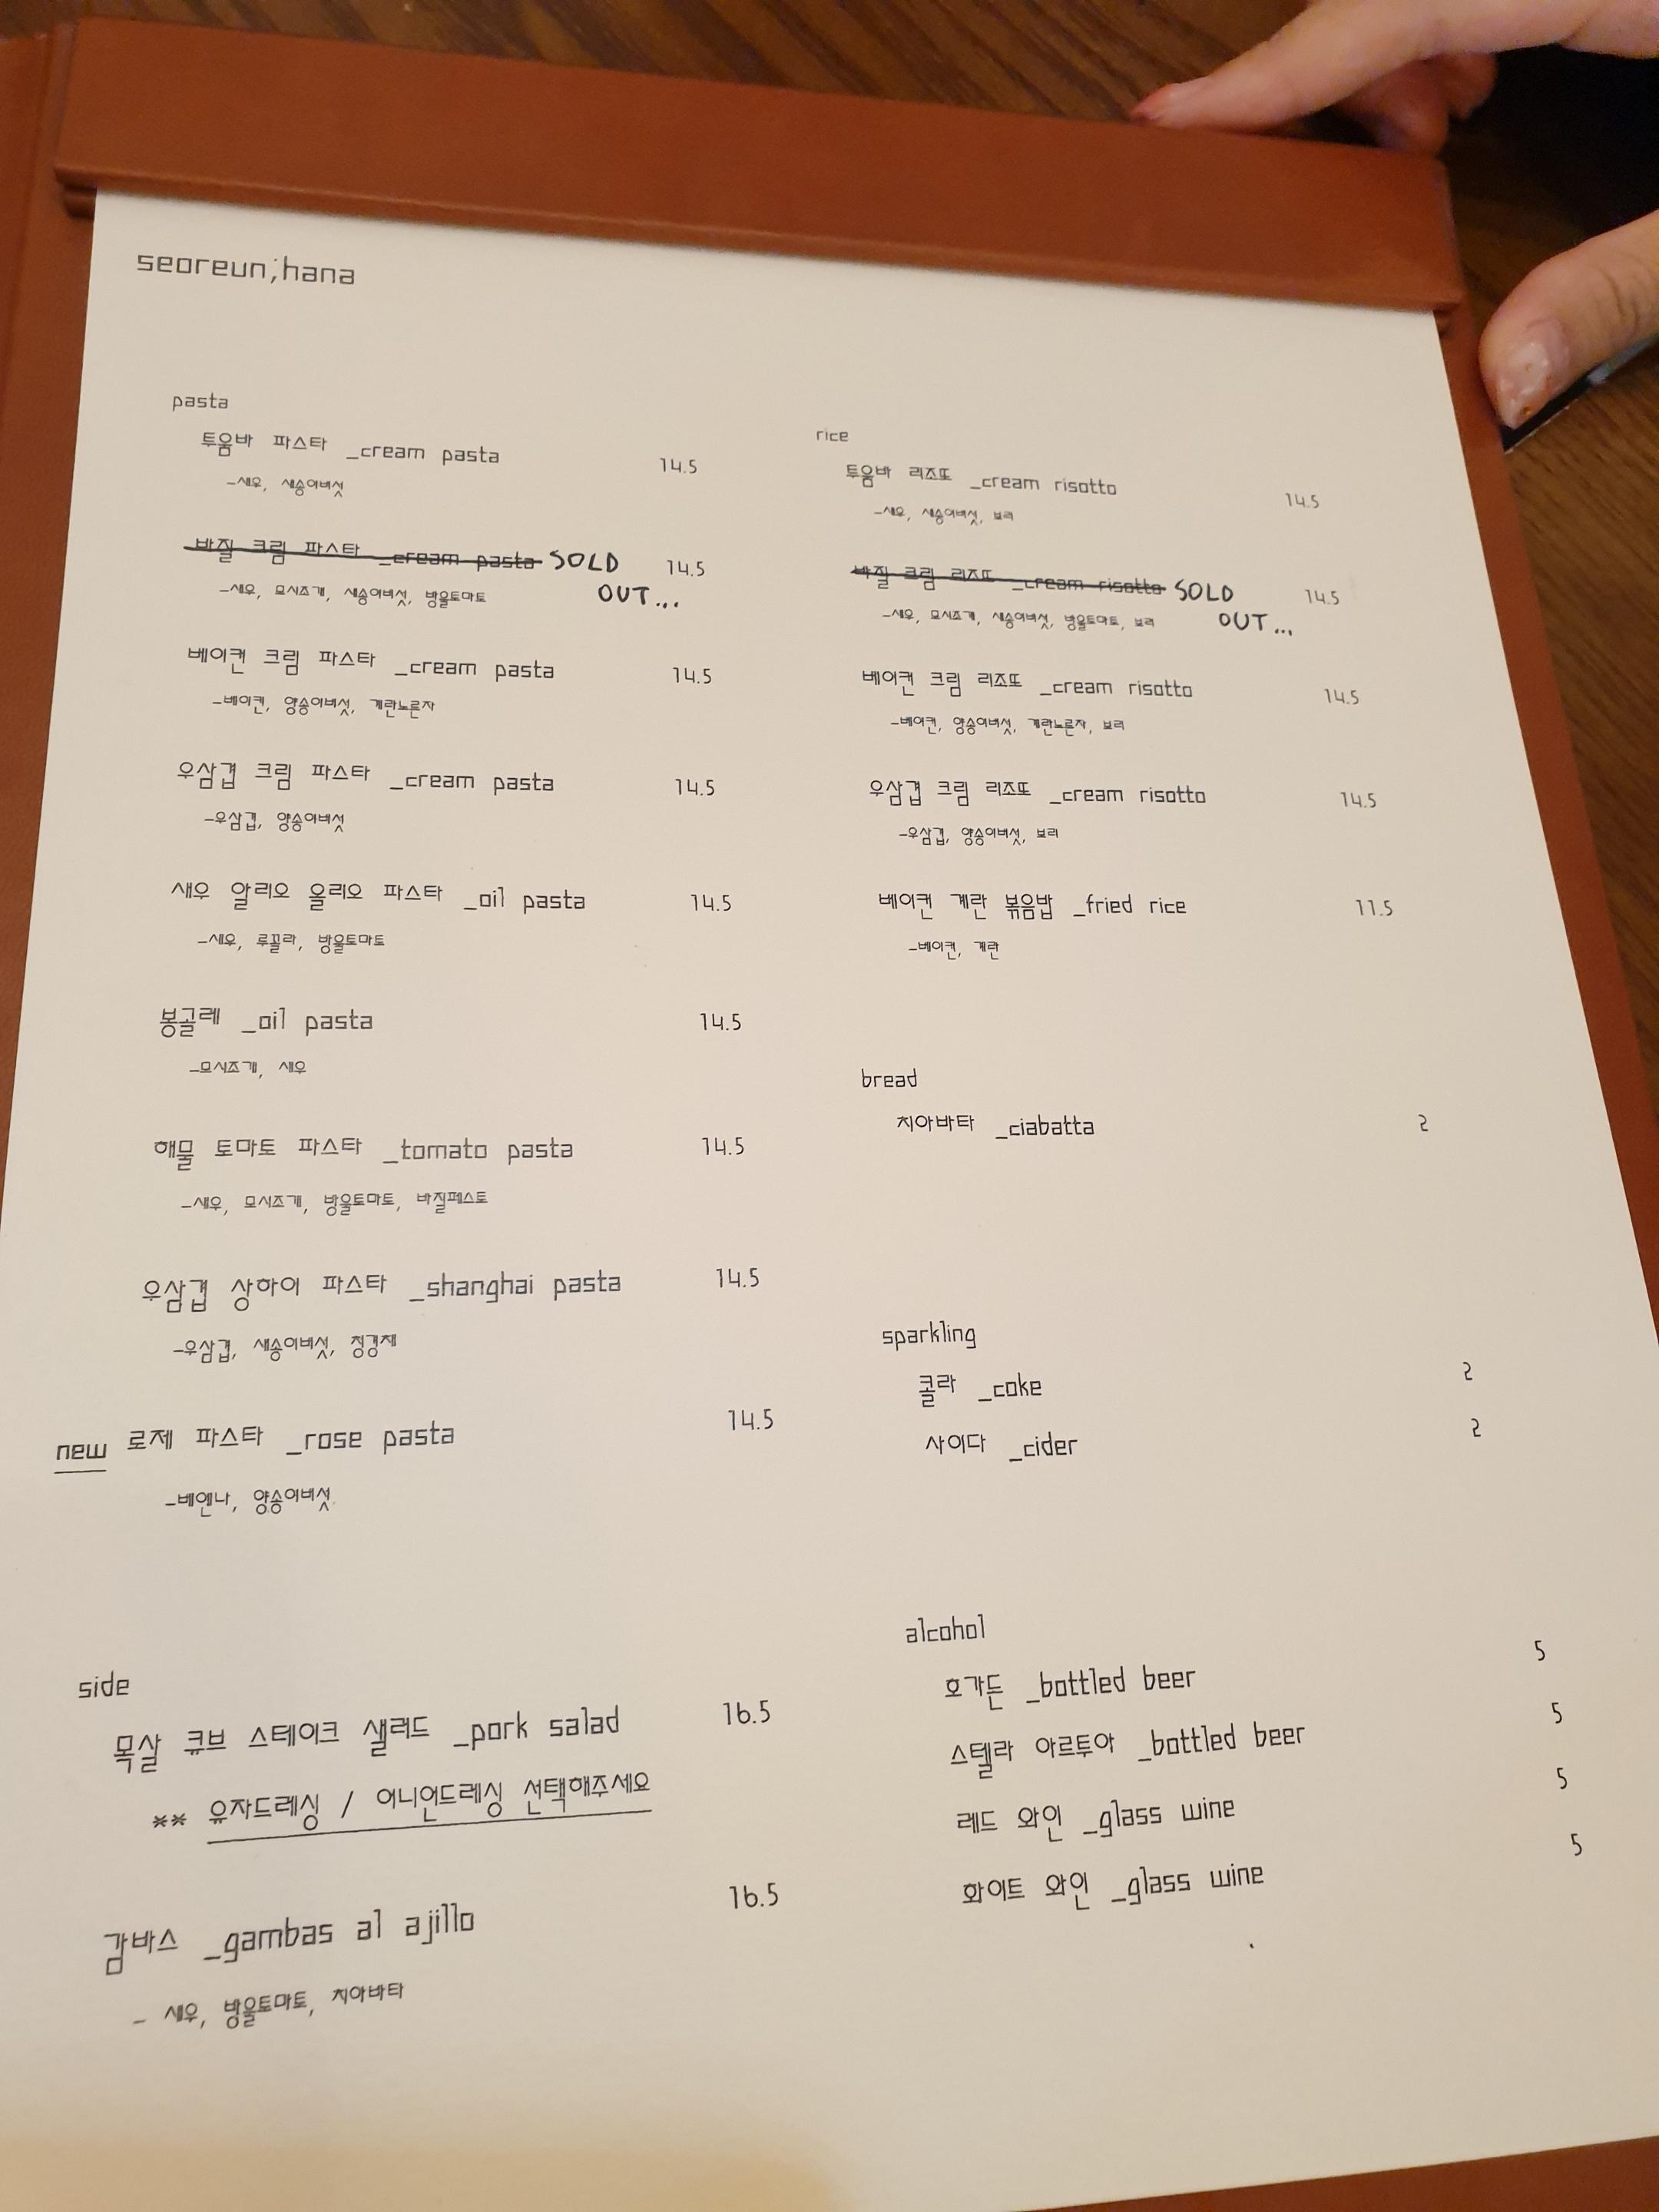 seoreun;hana
pasta
투움바 파스타 _cream pasta 14.5
-새우, 새송이버섯
바질 크림 파스타 _cream pasta SOLD 14.5
OUT...
-새우, 모시조개, 새송이버섯, 방울토마토
베이컨 크림 파스타 _cream pasta 14.5
-베이컨, 양송이버섯, 계란노른자
우삼겹 크림 파스타 _cream pasta 14.5
-우삼겹, 양송이버섯
새우 알리오 올리오 파스타 _oil pasta 14.5
-새우, 루꼴라, 방울토마토
봉골레 _oil pasta 14.5
-모시조개, 새우
해물 토마토 파스타 _tomato pasta 14.5
-새우, 모시조개, 방울토마토, 바질페스토
우삼겹 상하이 파스타 _shanghai pasta 14.5
-우삼겹, 새송이버섯, 청경채
new 로제 파스타 _rose pasta 14.5
-베엔나, 양송이버섯
side
목살 큐브 스테이크 샐러드 _pork salad 16.5
** 유자드레싱 / 어니언드레싱 선택해주세요
감바스 _gambas al ajillo 16.5
- 새우, 방울토마토, 치아바타
rice
투움바 리조또 _cream risotto 14.5
-새우, 새송이버섯, 보리
바질 크림 리조또 _cream risotto SOLD 14.5
OUT...
-새우, 모시조개, 새송이버섯, 방울토마토, 보리
베이컨 크림 리조또 _cream risotto 14.5
-베이컨, 양송이버섯, 계란노른자, 보리
우삼겹 크림 리조또 _cream risotto 14.5
-우삼겹, 양송이버섯, 보리
베이컨 계란 볶음밥 _fried rice 11.5
-베이컨, 계란
bread
치아바타 _ciabatta 2
sparkling
콜라 _coke 2
사이다 _cider 2
alcohol
호가든 _bottled beer 5
스텔라 아르투아 _bottled beer 5
레드 와인 _glass wine 5
화이트 와인 _glass wine 5